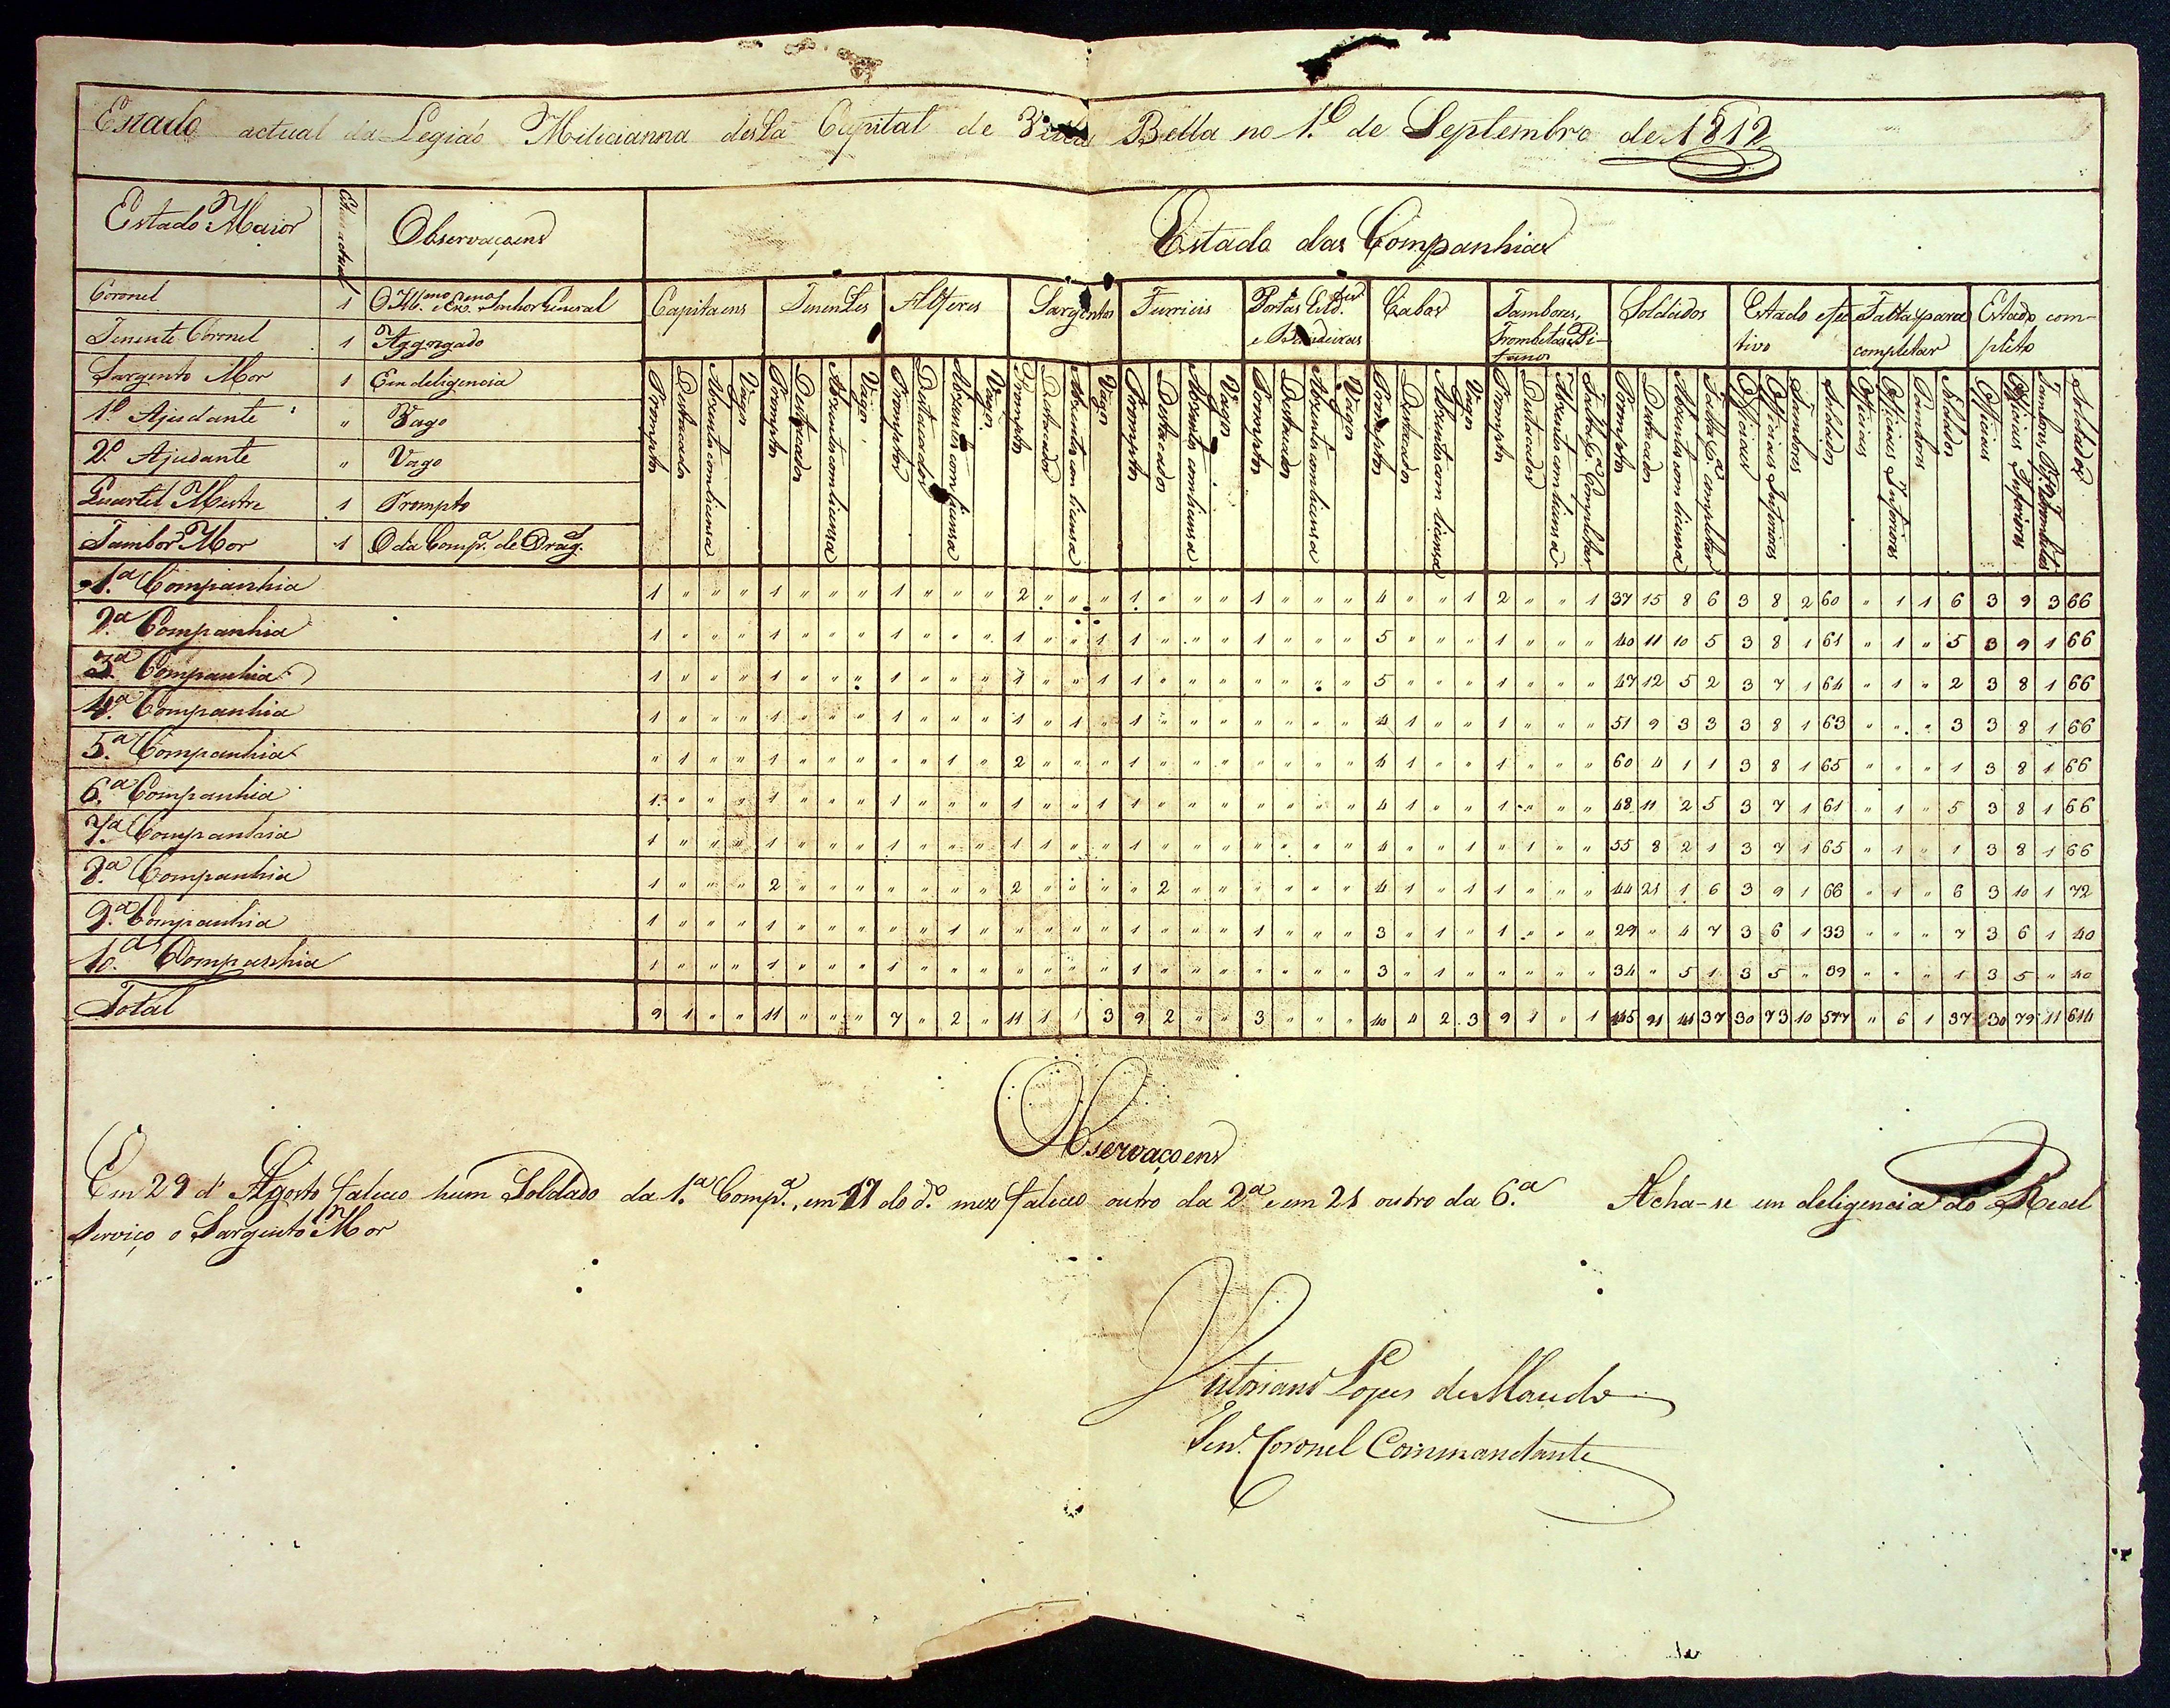 Estado actual da Legiaõ Milicianna desta Capital de Villa Bella no 1.º de Septembro de 1812
Estado Maior | Estado actual | Observaçoens | Estado das Companhias
Coronel 1 O Ill.mo e Ex.mo Senhor General
Tenente Coronel 1 Aggregado
Sargento Mor 1 Em deligencia
1.º Ajudante " Vago
2.º Ajudante " Vago
Quartel Mestre 1 Prompto
Tambor Mor 1 O da Comp.ª de Drag.s
Capitaens | Tenentes | Alferes | Sargentos | Furrieis | Portas Estd.es e Bandeiras | Cabos | Tambores, Trombetas e Pifanos | Soldados | Estado efetivo | Falta para completar | Estado completo
Promptos Destacados Abzentes com licensa Vagos
Promptos Destacados Abzentes com licensa Vagos
Promptos Destacados Abzentes com licensa Vagos
Promptos Destacados Abzentes com licensa Vagos
Promptos Destacados Abzentes com licensa Vagos
Promptos Destacados Abzentes com licensa Vagos
Promptos Destacados Abzentes com licensa Vagos
Promptos Destacados Abzentes com licensa Falta p.ª Completar
Promptos Destacados Abzentes com licensa Falta p.ª completar
Officiaes Officiaes Inferiores Tambores Soldados
Officiaes Officiaes Inferiores Tambores Soldados
Officiaes Officiaes Inferiores Tambores Pif. Trombetas Soldados
1.ª Companhia 1 " " " 1 " " " 1 " " " 2 " " " 1 " " " 1 " " " 4 " " 1 2 " " 1 37 15 8 6 3 8 2 60 " 1 1 6 3 9 3 66
2.ª Companhia 1 " " " 1 " " " 1 " " " 1 " " 1 1 " " " 1 " " " 5 " " " 1 " " " 40 11 10 5 3 8 1 61 " 1 " 5 3 9 1 66
3.ª Companhia 1 " " " 1 " " " 1 " " " 1 " " 1 1 " " " " " " " 5 " " " 1 " " " 47 12 5 2 3 7 1 64 " 1 " 2 3 8 1 66
4.ª Companhia 1 " " " 1 " " " 1 " " " 1 " 1 " 1 " " " " " " " 4 1 " " 1 " " " 51 9 3 3 3 8 1 63 " " " 3 3 8 1 66
5.ª Companhia " 1 " " 1 " " " " " 1 " 2 " " " 1 " " " " " " " 4 1 " " 1 " " " 60 4 1 1 3 8 1 65 " " " 1 3 8 1 66
6.ª Companhia 1 " " " 1 " " " 1 " " " 1 " " 1 1 " " " " " " " 4 1 " " 1 " " " 48 11 2 5 3 7 1 61 " 1 " 5 3 8 1 66
7.ª Companhia 1 " " " 1 " " " 1 " " " 1 1 " " 1 " " " " " " " 4 " " 1 " 1 " " 55 8 2 1 3 7 1 65 " 1 " 1 3 8 1 66
8.ª Companhia 1 " " " 2 " " " " " " " 2 " " " " 2 " " " " " " 4 1 " 1 1 " " " 44 21 1 6 3 9 1 66 " 1 " 6 3 10 1 72
9.ª Companhia 1 " " " 1 " " " " " 1 " " " " " 1 " " " 1 " " " 3 " 1 " 1 " " " 29 " 4 7 3 6 1 33 " " " 7 3 6 1 40
10.ª Companhia 1 " " " 1 " " " 1 " " " " " " " 1 " " " " " " " 3 " 1 " " " " " 34 " 5 1 3 5 " 39 " " " 1 3 5 " 40
Total 9 1 " " 11 " " " 7 " 2 " 11 1 1 3 9 2 " " 3 " " " 40 4 2 3 9 1 " 1 445 91 41 37 30 73 10 577 " 6 1 37 30 79 11 614
Observaçoens
Em 29 d' Agosto faleceo hum Soldado da 1.ª Comp.ª, em 17 do d.º mez faleceo outro da 2.ª e em 21 outro da 6.ª Acha-se em deligencia do Real
Serviço o Sargento Mor
Victoriano Lopes de Macedo
Ten.e Coronel Commandante